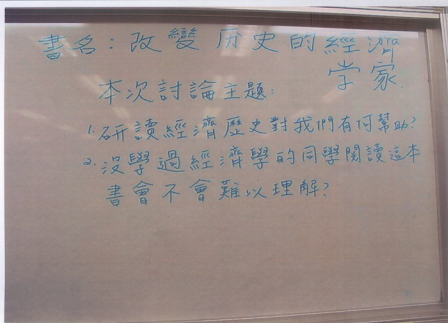 書名：改變历史的經濟
学家
本次討論主題：
1.研讀經濟歷史對我們有何幫助？
2.沒學過經濟學的同學閱讀這本
書會不會難以理解？